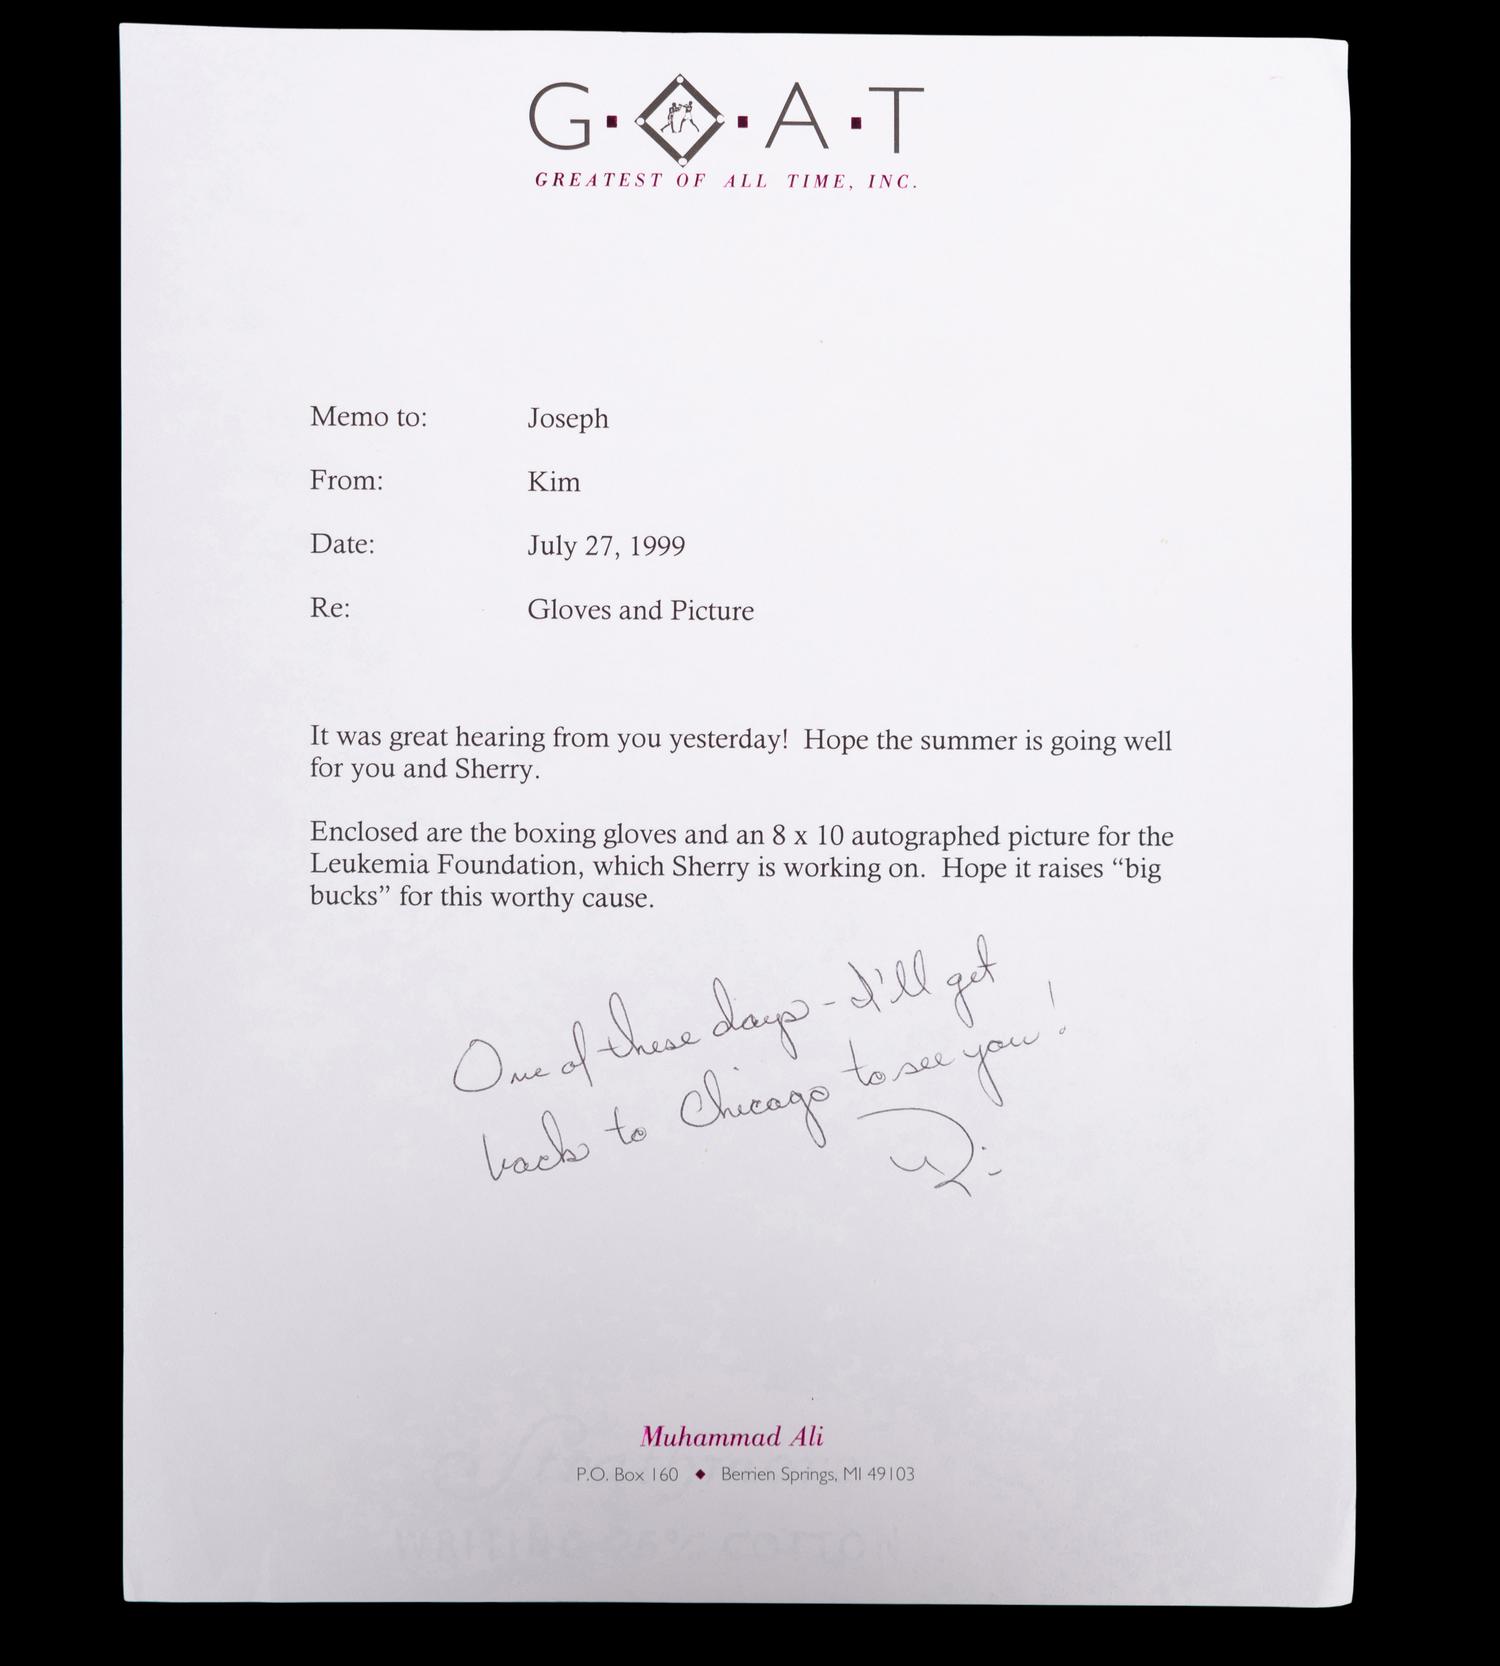 G · O · A · T
GREATEST OF ALL TIME, INC.
Memo to: Joseph
From: Kim
Date: July 27, 1999
Re: Gloves and Picture
It was great hearing from you yesterday! Hope the summer is going well
for you and Sherry.
Enclosed are the boxing gloves and an 8 x 10 autographed picture for the
Leukemia Foundation, which Sherry is working on. Hope it raises “big
bucks” for this worthy cause.
One of these days - I'll get
back to Chicago to see you!
Muhammad Ali
P.O. Box 160 ♦ Berrien Springs, MI 49103